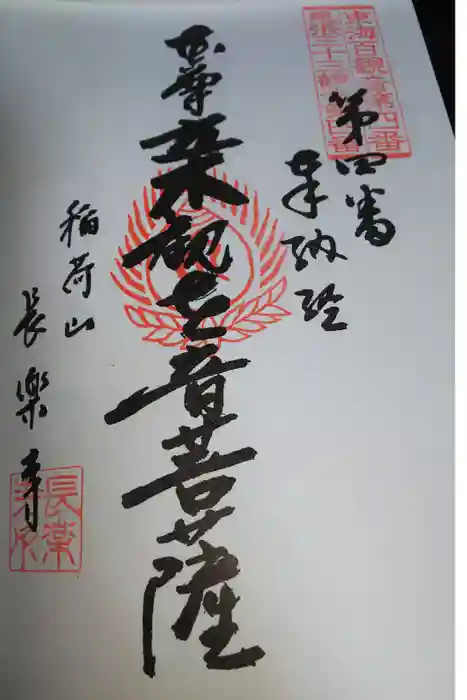 東海百観音第四番
第四番
奉納経
本尊
乗木観世音菩薩
稲荷山
長樂寺
長楽
寺印